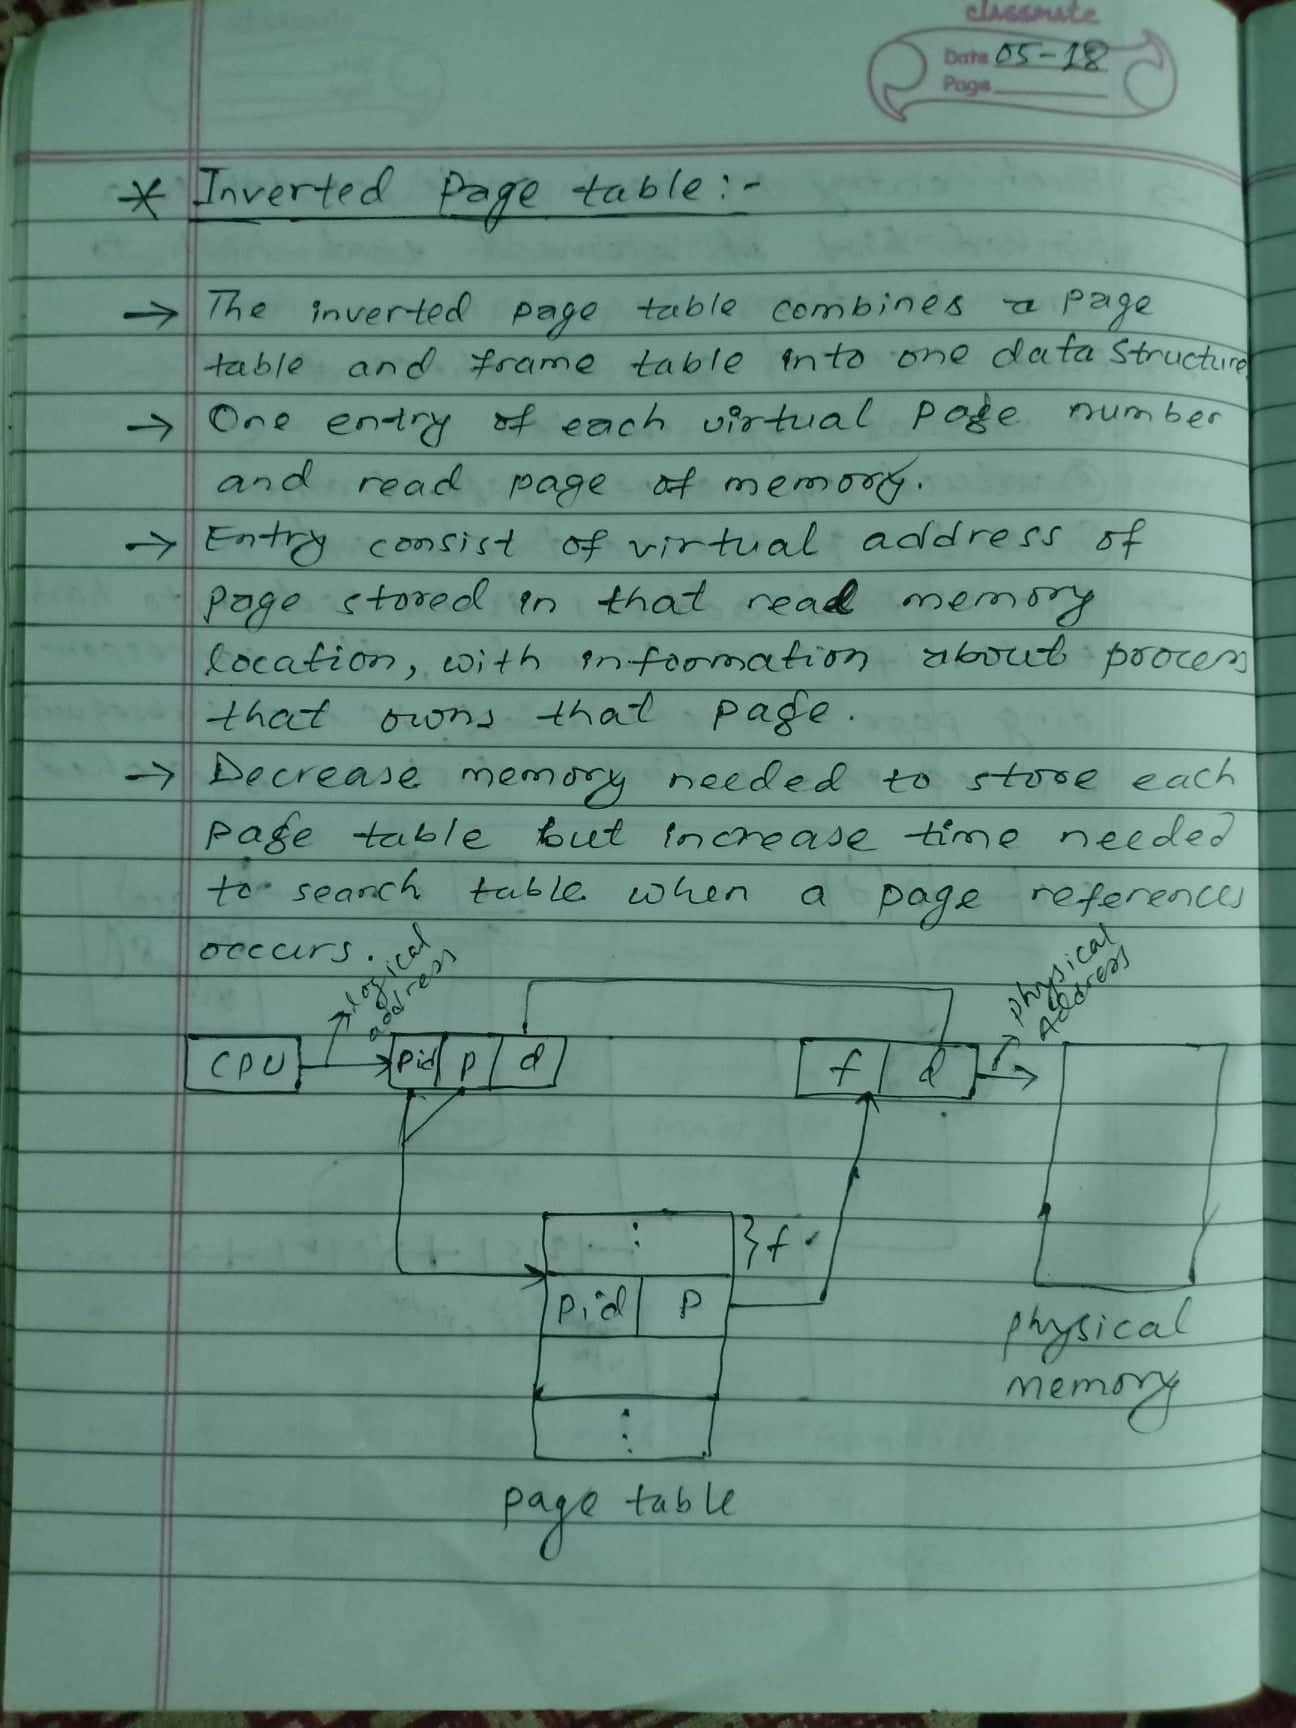 classmate
Date 05-18
Page
* Inverted Page table:-
→ The inverted page table combines a page
table and frame table into one data structure
→ One entry of each virtual page number
and read page of memory.
→ Entry consist of virtual address of
page stored in that read memory
location, with information about process
that owns that page.
→ Decrease memory needed to store each
page table but increase time needed
to search table when a page references
occurs.
logical
address
physical
Address
CPU
pid p d
f d
:
} f
pid p
:
physical
memory
page table